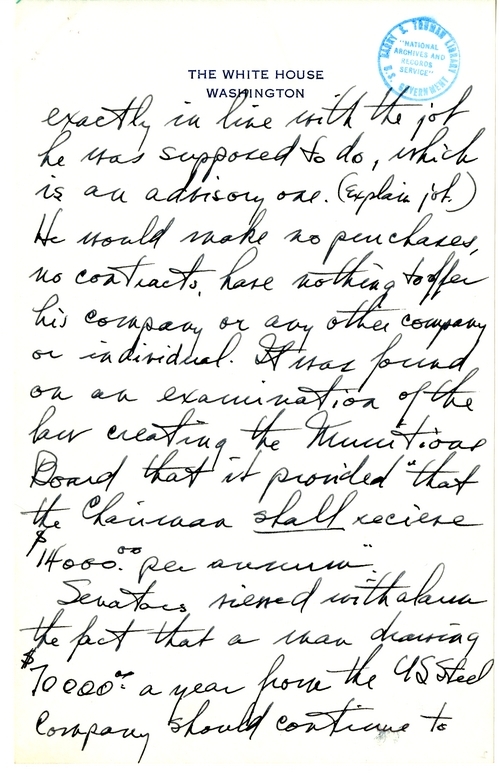 HARRY S. TRUMAN LIBRARY
"NATIONAL
ARCHIVES AND
RECORDS
SERVICE"
U.S. GOVERNMENT
THE WHITE HOUSE
WASHINGTON
exactly in line with the job
he was supposed to do, which
is an advisory one. (Explain job.)
He would make no purchases,
no contracts, have nothing to offer
his company or any other company
or individual. It was found
on an examination of the
law creating the Munitions
Board that it provided "that
the Chairman shall recieve
$14000.00 per annum".
Senators viewed with alarm
the fact that a man drawing
$70000.00 a year from the US Steel
Company should continue to